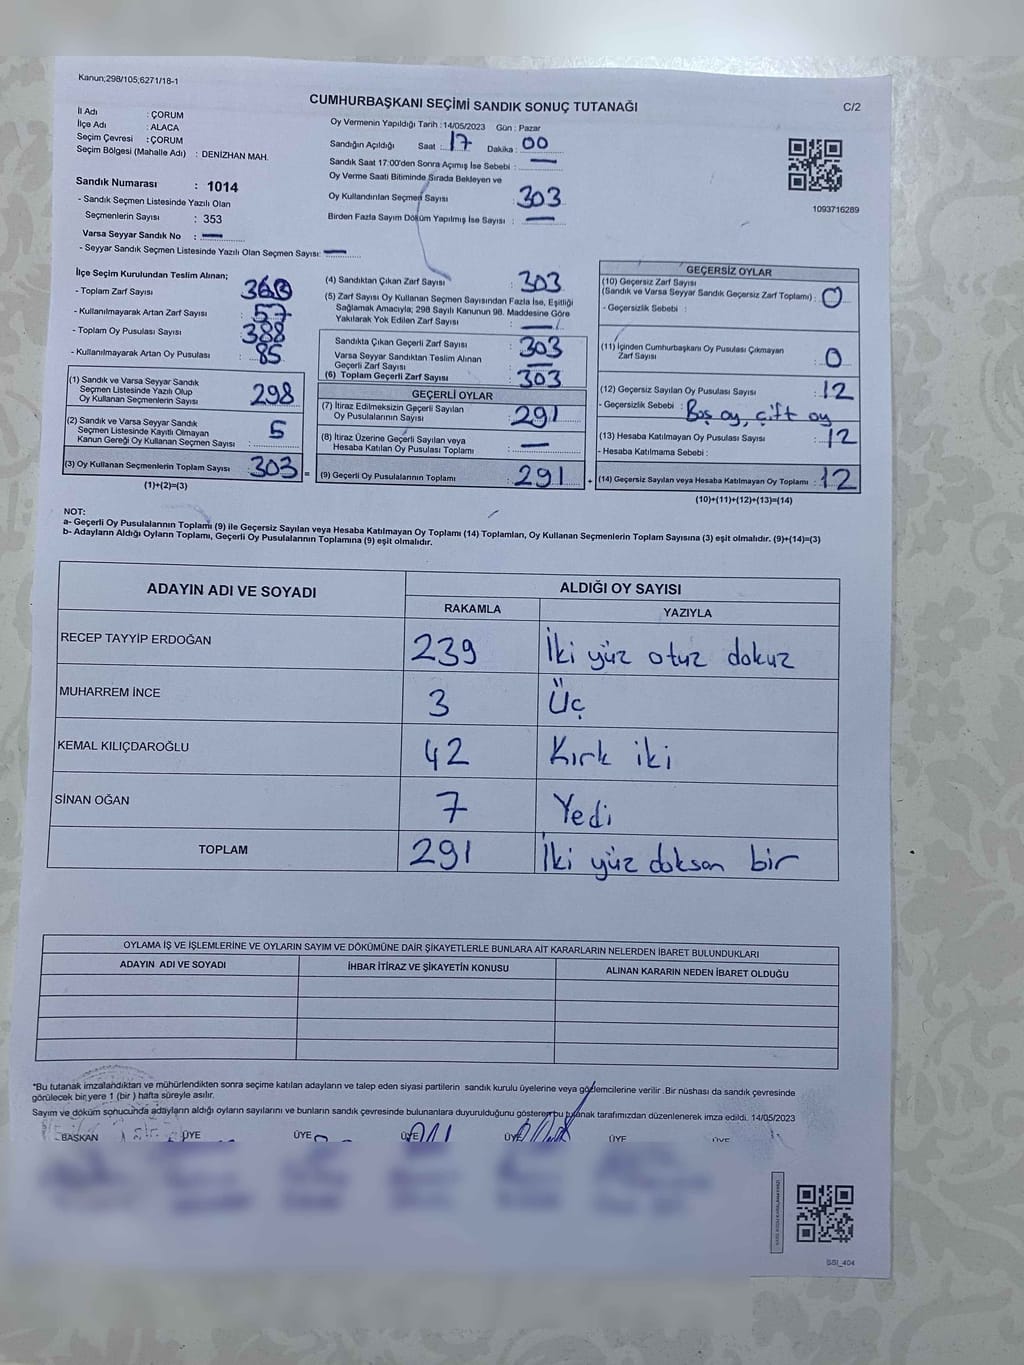 Kanun;298/105;6271/18-1
CUMHURBAŞKANI SEÇİMİ SANDIK SONUÇ TUTANAĞI
C/2
İl Adı : ÇORUM
İlçe Adı : ALACA
Seçim Çevresi : ÇORUM
Seçim Bölgesi (Mahalle Adı) : DENİZHAN MAH.
Oy Vermenin Yapıldığı Tarih : 14/05/2023 Gün : Pazar
Sandığın Açıldığı Saat : 17 Dakika : 00
Sandık Saat 17:00'den Sonra Açımış İse Sebebi : —
Oy Verme Saati Bitiminde Sırada Bekleyen ve
Oy Kullandırılan Seçmen Sayısı : 303
Birden Fazla Sayım Döküm Yapılmış İse Sayısı : —
1093716289
Sandık Numarası : 1014
- Sandık Seçmen Listesinde Yazılı Olan
Seçmenlerin Sayısı : 353
Varsa Seyyar Sandık No : —
- Seyyar Sandık Seçmen Listesinde Yazılı Olan Seçmen Sayısı: —
İlçe Seçim Kurulundan Teslim Alınan;
- Toplam Zarf Sayısı
- Kullanılmayarak Artan Zarf Sayısı : 57
- Toplam Oy Pusulası Sayısı : 388
- Kullanılmayarak Artan Oy Pusulası : 85
(1) Sandık ve Varsa Seyyar Sandık
Seçmen Listesinde Yazılı Olup
Oy Kullanan Seçmenlerin Sayısı 298
(2) Sandık ve Varsa Seyyar Sandık
Seçmen Listesinde Kayıtlı Olmayan
Kanun Gereği Oy Kullanan Seçmen Sayısı : 5
(3) Oy Kullanan Seçmenlerin Toplam Sayısı 303 =
(1)+(2)=(3)
(4) Sandıktan Çıkan Zarf Sayısı : 303
(5) Zarf Sayısı Oy Kullanan Seçmen Sayısından Fazla İse, Eşitliği
Sağlamak Amacıyla; 298 Sayılı Kanunun 98. Maddesine Göre
Yakılarak Yok Edilen Zarf Sayısı : —
Sandıkta Çıkan Geçerli Zarf Sayısı : 303
Varsa Seyyar Sandıktan Teslim Alınan
Geçerli Zarf Sayısı : —
(6) Toplam Geçerli Zarf Sayısı : 303
GEÇERLİ OYLAR
(7) İtiraz Edilmeksizin Geçerli Sayılan
Oy Pusulalarının Sayısı : 291
(8) İtiraz Üzerine Geçerli Sayılan veya
Hesaba Katılan Oy Pusulası Toplamı : —
(9) Geçerli Oy Pusulalarının Toplamı : 291 +
GEÇERSİZ OYLAR
(10) Geçersiz Zarf Sayısı
(Sandık ve Varsa Seyyar Sandık Geçersiz Zarf Toplamı) : 0
- Geçersizlik Sebebi :
(11) İçinden Cumhurbaşkanı Oy Pusulası Çıkmayan
Zarf Sayısı : 0
(12) Geçersiz Sayılan Oy Pusulası Sayısı : 12
- Geçersizlik Sebebi : Boş oy, çift oy
(13) Hesaba Katılmayan Oy Pusulası Sayısı : 12
- Hesaba Katılmama Sebebi :
(14) Geçersiz Sayılan veya Hesaba Katılmayan Oy Toplamı : 12
(10)+(11)+(12)+(13)=(14)
NOT:
a- Geçerli Oy Pusulalarının Toplamı (9) ile Geçersiz Sayılan veya Hesaba Katılmayan Oy Toplamı (14) Toplamları, Oy Kullanan Seçmenlerin Toplam Sayısına (3) eşit olmalıdır. (9)+(14)=(3)
b- Adayların Aldığı Oyların Toplamı, Geçerli Oy Pusulalarının Toplamına (9) eşit olmalıdır.
ADAYIN ADI VE SOYADI
ALDIĞI OY SAYISI
RAKAMLA YAZIYLA
RECEP TAYYİP ERDOĞAN 239 İki yüz otuz dokuz
MUHARREM İNCE 3 Üç
KEMAL KILIÇDAROĞLU 42 Kırk iki
SİNAN OĞAN 7 Yedi
TOPLAM 291 İki yüz doksan bir
OYLAMA İŞ VE İŞLEMLERİNE VE OYLARIN SAYIM VE DÖKÜMÜNE DAİR ŞİKAYETLERLE BUNLARA AİT KARARLARIN NELERDEN İBARET BULUNDUKLARI
ADAYIN ADI VE SOYADI İHBAR İTİRAZ VE ŞİKAYETİN KONUSU ALINAN KARARIN NEDEN İBARET OLDUĞU
*Bu tutanak imzalandıktan ve mühürlendikten sonra seçime katılan adayların ve talep eden siyasi partilerin sandık kurulu üyelerine veya gözlemcilerine verilir .Bir nüshası da sandık çevresinde
görülecek bir yere 1 (bir ) hafta süreyle asılır.
Sayım ve döküm sonucunda adayların aldığı oyların sayılarını ve bunların sandık çevresinde bulunanlara duyurulduğunu gösteren bu tutanak tarafımızdan düzenlenerek imza edildi. 14/05/2023
BAŞKAN ÜYE ÜYE ÜYE ÜYE ÜYE ÜYE
SSI_404